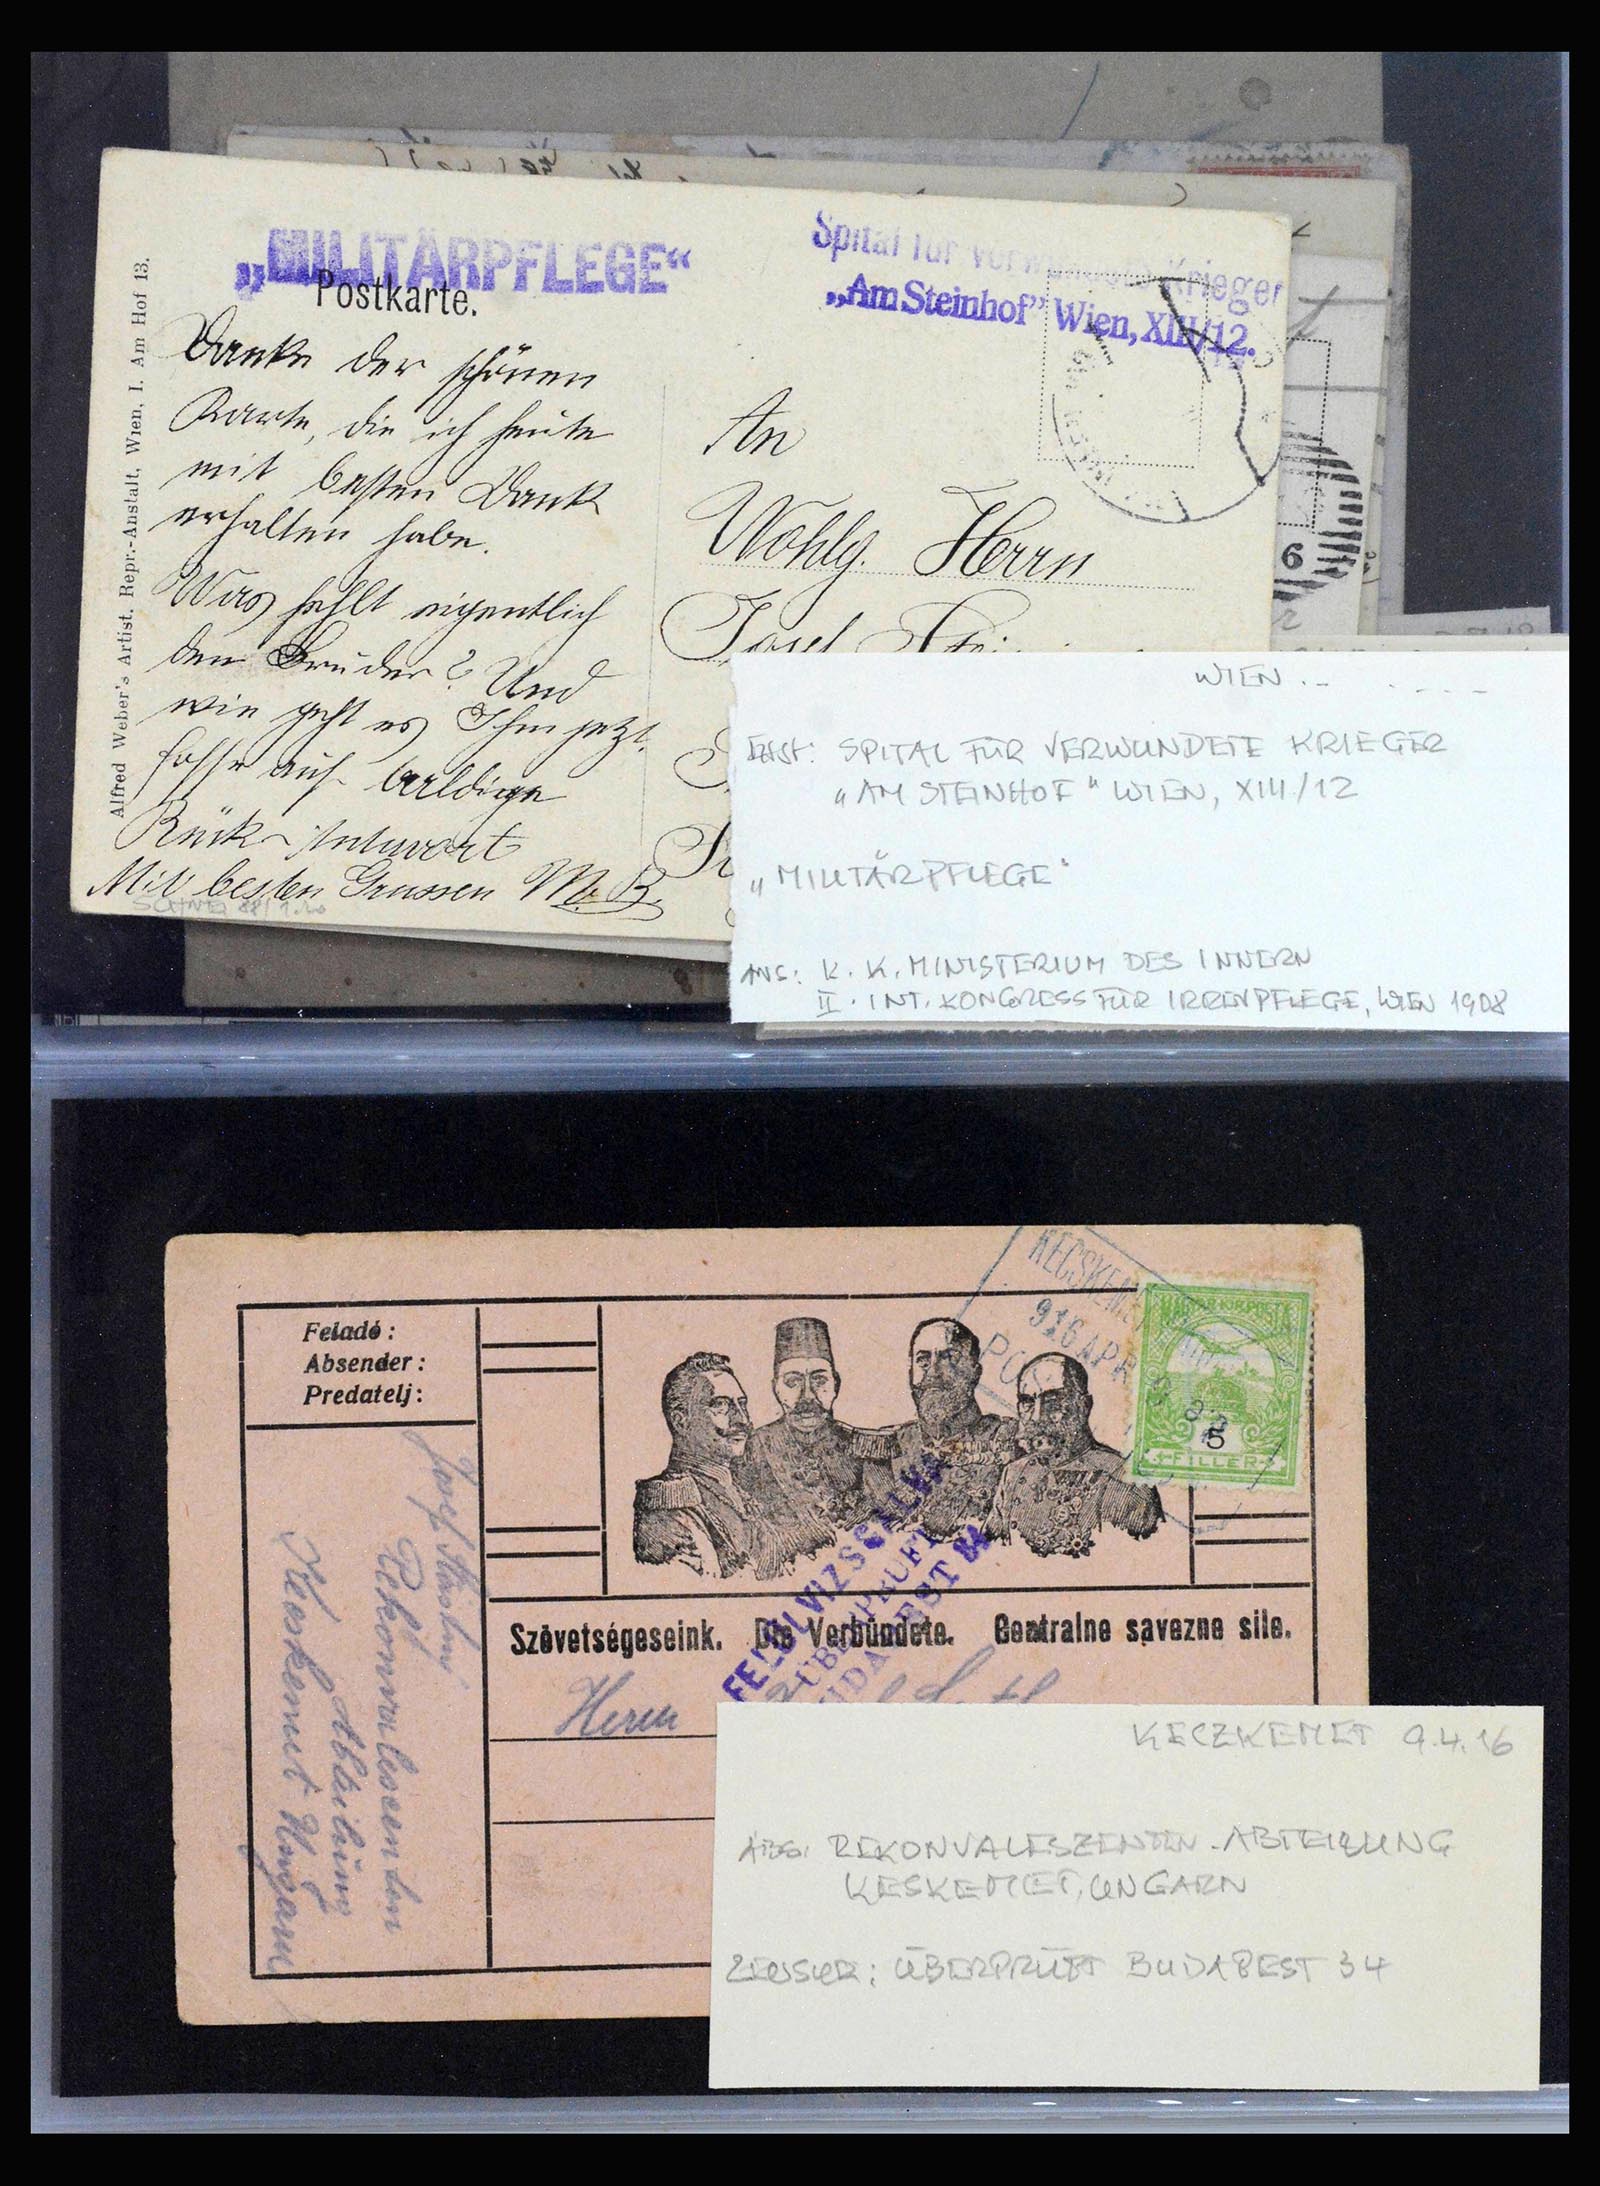 „MILITÄRPFLEGE“
Postkarte.
Spital für verwundete Krieger
„Am Steinhof” Wien, XIII/12.
Alfred Weber's Artist. Repr.-Anstalt, Wien, I. Am Hof 13.
Danke der schönen
Karte, die ich heute
mit besten Dank
erhalten habe.
Was fehlt eigentlich
den Bruder? Und
wie geht es Ihm jetzt.
hoffe auf baldige
Rück Antwort
Mit besten Grussen M. B.
An
Wohlg. Herrn
Josef
6
WIEN
SPITAL FÜR VERWUNDETE KRIEGER
„AM STEINHOF" WIEN, XIII/12
„MILITÄRPFLEGE"
ANS: K. K. MINISTERIUM DES INNERN
II. INT. KONGRESS FÜR IRRENPFLEGE, WIEN 1908
KECSKEMÉT
916 APR
MAGYAR KIR. POSTA
5
FILLER
Feladó:
Absender:
Predatelj:
Josef
Rekonvalescenten
Abteilung
Keskemet Ungarn
FELÜLVIZSGÁLVA
ÜBERPRÜFT
BUDAPEST 34
Szövetségeseink. Die Verbündete. Centralne savezne sile.
Herrn
KECZKEMET 9.4.16
ABS: REKONVALESZENTEN-ABTEILUNG
KESKEMET, UNGARN
ZENSUR: ÜBERPRÜFT BUDAPEST 34